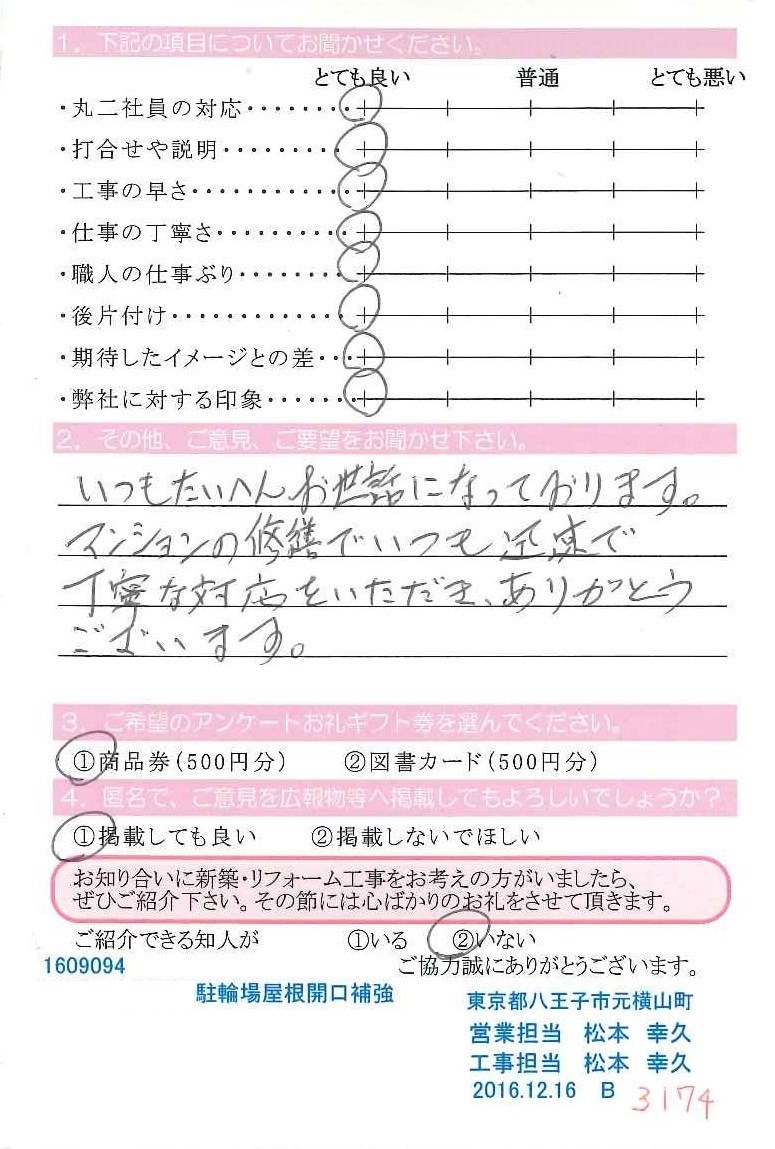 1. 下記の項目についてお聞かせください。
とても良い 普通 とても悪い
・丸二社員の対応・・・・・・・・
・打合せや説明・・・・・・・・・
・工事の早さ・・・・・・・・・・・
・仕事の丁寧さ・・・・・・・・・
・職人の仕事ぶり・・・・・・・・
・後片付け・・・・・・・・・・・・
・期待したイメージとの差・・・
・弊社に対する印象・・・・・・・
2. その他、ご意見、ご要望をお聞かせ下さい。
いつもたいへんお世話になっております。
マンションの修繕でいつも迅速で
丁寧な対応をいただき、ありがとう
ございます。
3. ご希望のアンケートお礼ギフト券を選んでください。
①商品券(500円分) ②図書カード(500円分)
4. 匿名で、ご意見を広報物等へ掲載してもよろしいでしょうか?
①掲載しても良い ②掲載しないでほしい
お知り合いに新築・リフォーム工事をお考えの方がいましたら、
ぜひご紹介下さい。その節には心ばかりのお礼をさせて頂きます。
ご紹介できる知人が ①いる ②いない
1609094 ご協力誠にありがとうございます。
駐輪場屋根開口補強 東京都八王子市元横山町
営業担当 松本 幸久
工事担当 松本 幸久
2016.12.16 B 3174